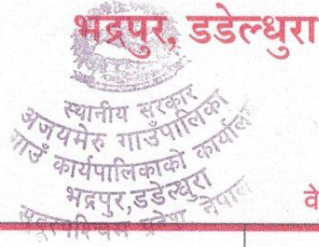 भद्रपुर, डडेल्धुरा
स्थानीय सरकार
अजयमेरु गाउँपालिका
गाउँ कार्यपालिकाको कार्यालय
भद्रपुर,डडेल्धुरा
सुदूरपश्चिम प्रदेश, नेपाल
वे